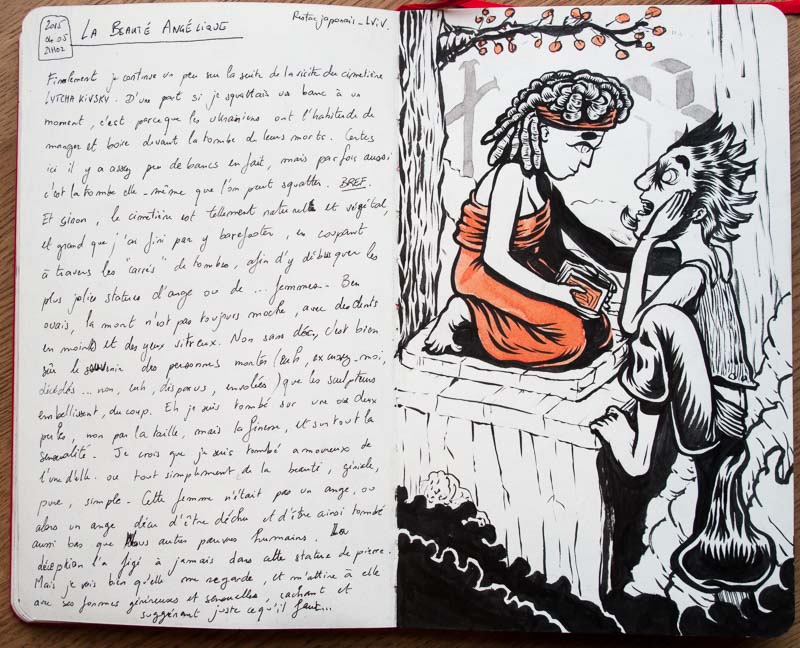 2015
04.05
21H02
LA BEAUTÉ ANGÉLIQUE
Restac japonais _ LViV.
Finalement je continue un peu sur la suite de la visite du cimetière
LYTCHAKIVSKY. D'une part si je squattais un banc à un
moment, c'est parce que les ukrainiens ont l'habitude de
manger et boire devant la tombe de leurs morts. Certes
ici il y a assez peu de bancs en fait, mais parfois aussi
c'est la tombe elle-même que l'on peut squatter. BREF.
Et sinon, le cimetière est tellement naturel et végétal,
et grand que j'ai fini par y barefooter, en coupant
à travers les "carrés" de tombes, afin d'y débusquer les
plus jolies statues d'ange ou de ... femmes _ Ben
ouais, la mort n'est pas toujours moche, avec des dents
en moins et des yeux vitreux. Non sans déc, c'est bien
sûr le souvenir des personnes mortes (euh, excusez-moi,
décédés ... non, euh, disparus, envolées) que les sculpteurs
embellissent, du coup. Eh je suis tombé sur une ou deux
perles, non par la taille, mais la finesse, et surtout la
sensualité _ Je crois que je suis tombé amoureux de
l'une d'elle. ou tout simplement de la beauté, géniale,
pure, simple _ Cette femme n'était pas un ange, ou
alors un ange déçu d'être déchu et d'être ainsi tombé
aussi bas que Nous autres pauvres humains. La
déception l'a figé à jamais dans cette statue de pierre.
Mais je vois bien qu'elle me regarde, et m'attire à elle
avec ses formes généreuses et sensuelles, cachant et
suggérant juste ce qu'il faut...